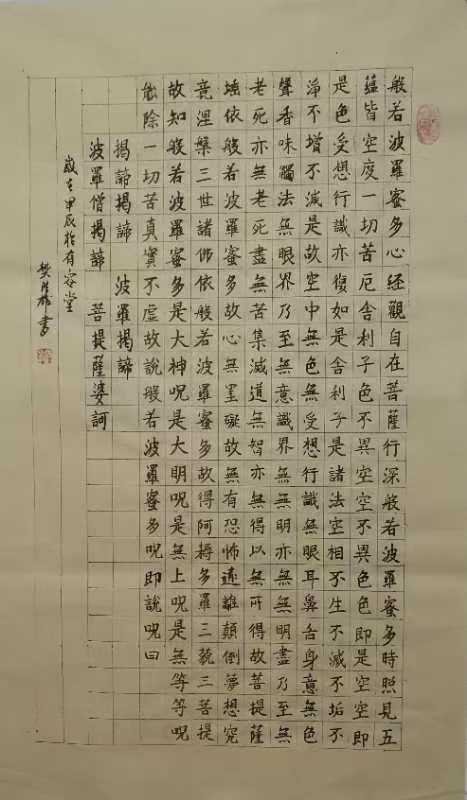 般若波羅蜜多心经觀自在菩薩行深般若波羅蜜多時照見五
蘊皆空度一切苦厄舍利子色不異空空不異色色即是空空即
是色受想行識亦復如是舍利子是諸法空相不生不滅不垢不
淨不增不減是故空中無色無受想行識無眼耳鼻舌身意無色
聲香味觸法無眼界乃至無意識界無無明亦無無明盡乃至無
老死亦無老死盡無苦集滅道無智亦無得以無所得故菩提薩
埵依般若波羅蜜多故心無罣礙故無有恐怖遠離顛倒夢想究
竟涅槃三世諸仏依般若波羅蜜多故得阿耨多羅三藐三菩提
故知般若波羅蜜多是大神呪是大明呪是無上呪是無等等呪
能除一切苦真實不虛故說般若波羅蜜多呪即說呪曰
揭諦揭諦 波羅揭諦
波羅僧揭諦 菩提薩婆訶
歲在甲辰於有容堂 樊書